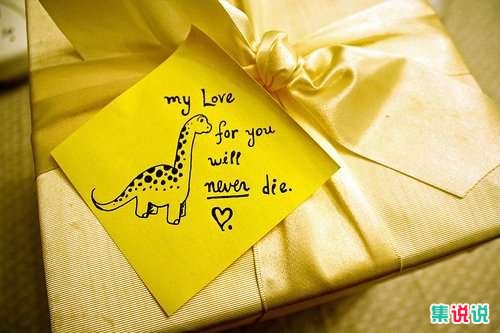 my Love
for you
will
never die.
集说说